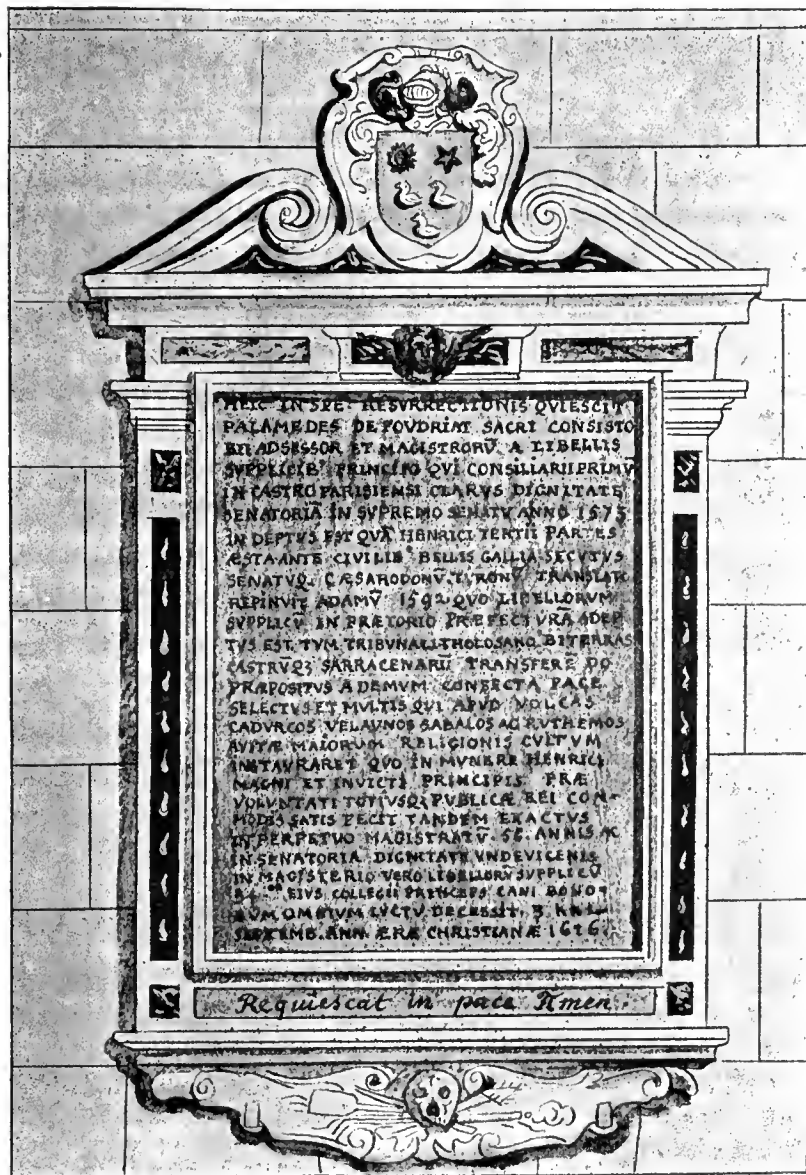 HEIC IN SPE RESVRRECTIONIS QVIESCIT
PALAMEDES DE FOVDRIAT SACRI CONSISTO
RII ADSESSOR ET MAGISTRORV̄ A LIBELLIS
SVPPLICIB⁹ PRINCIPO QVI CONSILLARII PRIMV̄
IN CASTRO PARISIENSI CLARVS DIGNITATE
SENATORIĀ IN SVPREMO SENATV ANNO 1573
IN DEPTVS EST QVĀ HENRICI TERTII PARTES
ÆSTA ANTE CIVILIB⁹ BELLIS GALLIA SECVTVS
SENATVQ. CÆSARODONV̄ TVRONV̄ TRANSLAT
REPINVIT ADAMV̄ 1592 QVO LIBELLORVM
SVPPLICV̄ IN PRÆTORIO PRÆFECTVRĀ ADEP
TVS EST. TVM TRIBVNALI THOLOSANO BITERRAS
CASTRV̄Q3 SARRACENARII TRANSFERĒ DO
PRÆPOSITVS A DEMVM CONFECTA PACE
SELECTVS ET MVLTIS QVI APVD VOLCAS
CADVRCOS VELAVNOS GABALOS AC RVTHEMOS
AVITÆ MAIORVM RELIGIONIS CVLTVM
INSTAVRARET QVO IN MVNERE HENRICI
MAGNI ET INVICTI PRINCIPIS PRÆ
VOLVNTATI TOTIVSQ3 PVBLICÆ REI COM-
MODIS SATIS FECIT TANDEM EXACTVS
IN PERPETVO MAGISTRATV̄ 56 ANNIS AC
IN SENATORIA DIGNITATE VNDEVICENIS
IN MAGISTERIO VERO LIBELLORV̄ SVPPLICV̄
EIVS COLLEGII PRINCEPS CANI BONO-
RVM OMNIVM LVCTV DECESSIT. 3 KAL
SEPTEMB. ANN. ÆRÆ CHRISTIANÆ 1626
Requiescat in pace Amen.